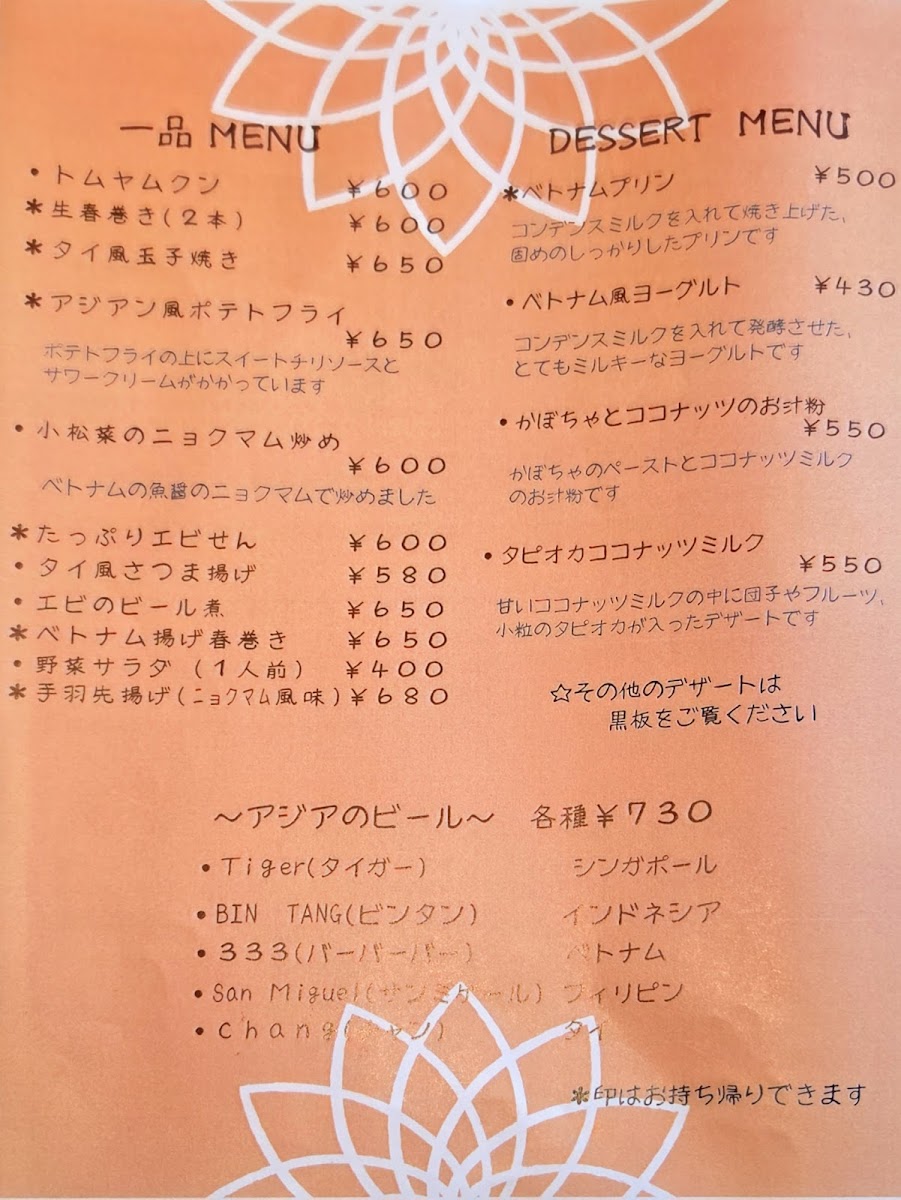 一品 MENU
・トムヤムクン ¥600
*生春巻き(2本) ¥600
*タイ風玉子焼き ¥650
*アジアン風ポテトフライ
¥650
ポテトフライの上にスイートチリソースと
サワークリームがかかっています
・小松菜のニョクマム炒め
¥600
ベトナムの魚醤のニョクマムで炒めました
*たっぷりエビせん ¥600
・タイ風さつま揚げ ¥580
・エビのビール煮 ¥650
*ベトナム揚げ春巻き ¥650
・野菜サラダ (1人前) ¥400
*手羽先揚げ(ニョクマム風味) ¥680
DESSERT MENU
*ベトナムプリン ¥500
コンデンスミルクを入れて焼き上げた、
固めのしっかりしたプリンです
・ベトナム風ヨーグルト ¥430
コンデンスミルクを入れて発酵させた、
とてもミルキーなヨーグルトです
・かぼちゃとココナッツのお汁粉
¥550
かぼちゃのペーストとココナッツミルク
のお汁粉です
・タピオカココナッツミルク
¥550
甘いココナッツミルクの中に団子やフルーツ、
小粒のタピオカが入ったデザートです
☆その他のデザートは
黒板をご覧ください
～アジアのビール～ 各種¥730
・Tiger(タイガー) シンガポール
・BIN TANG(ビンタン) インドネシア
・333(バーバーバー) ベトナム
・San Miguel(サンミゲール) フィリピン
・chang(チャン) タイ
*印はお持ち帰りできます